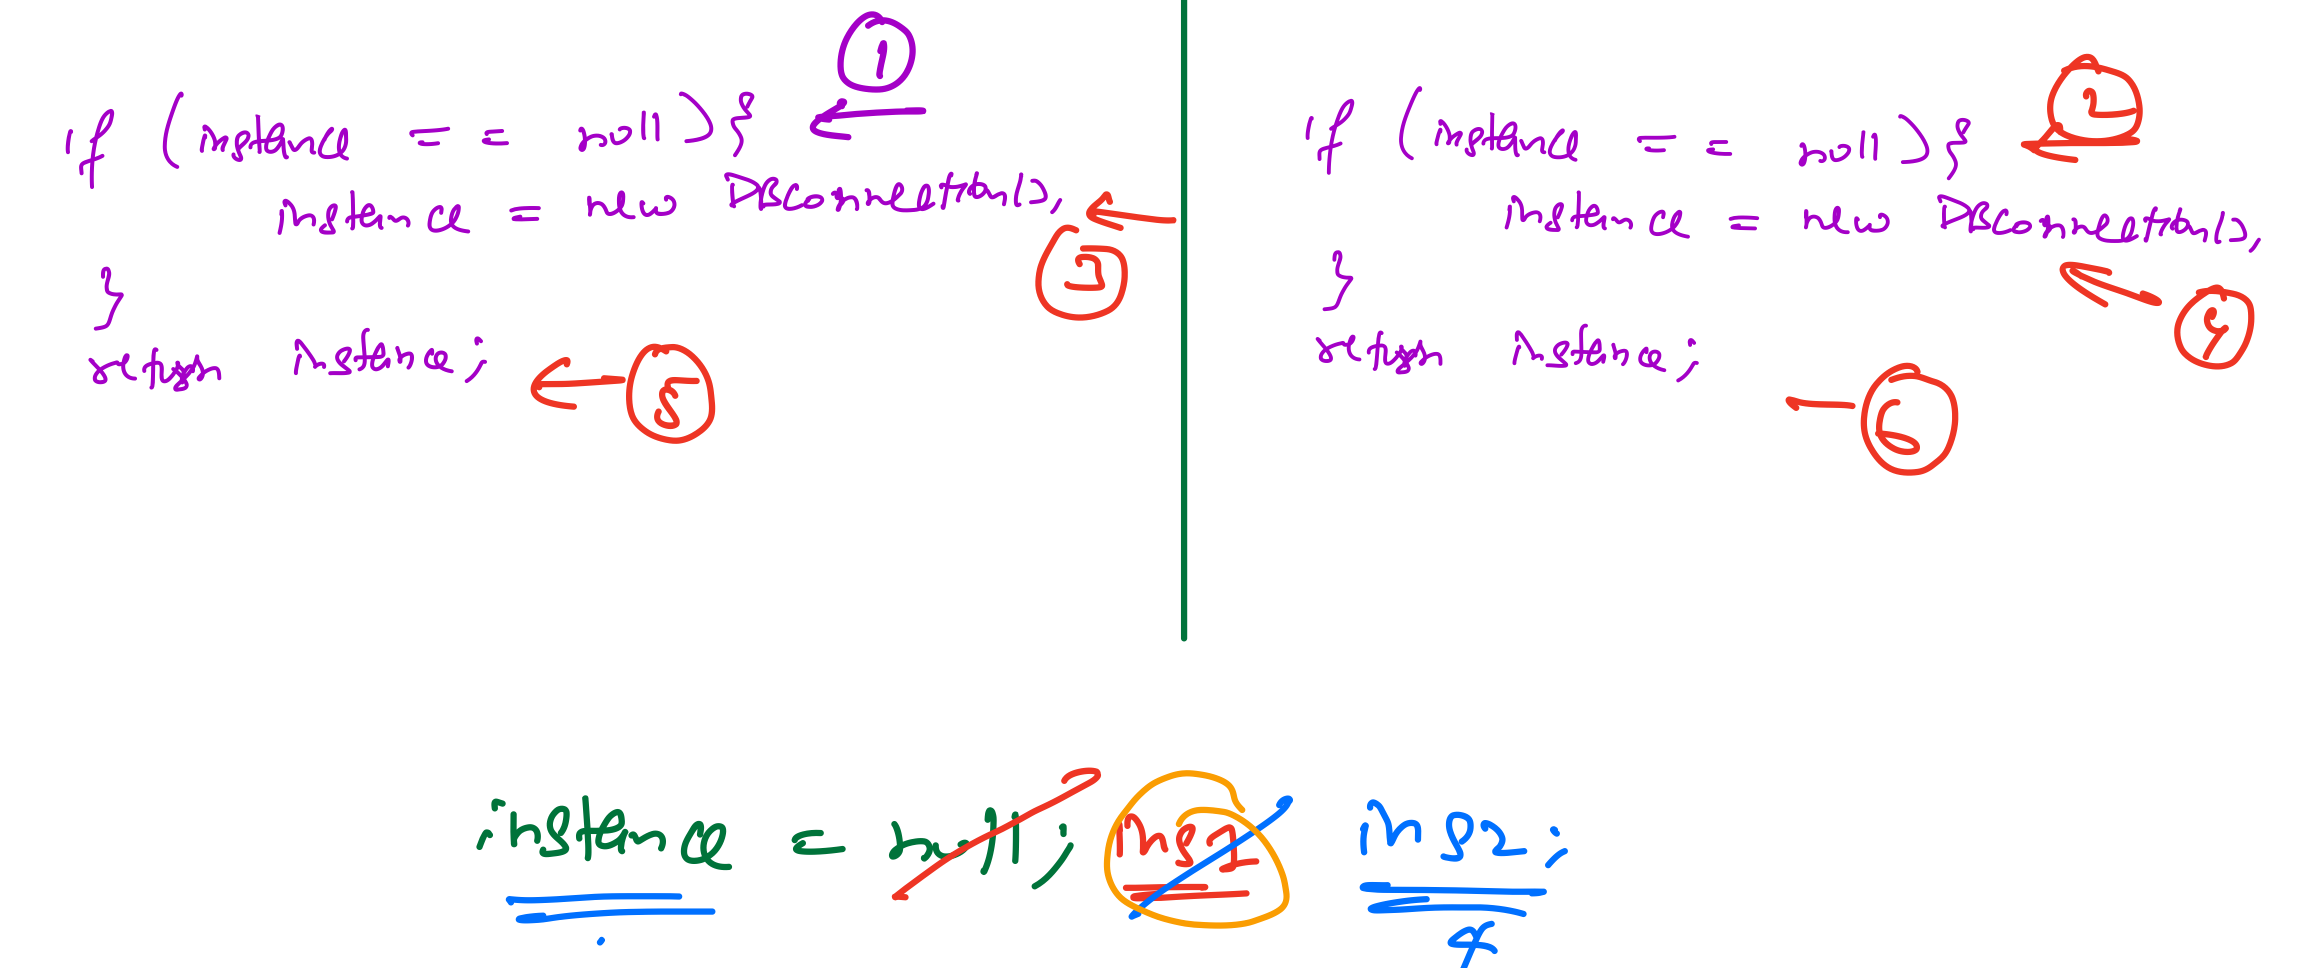 1
if (instance == null){
instance = new DBConnection(),
3
}
return instance;
5
2
if (instance == null){
instance = new DBConnection(),
}
4
return instance;
6
instance = null; ins1 ins2;